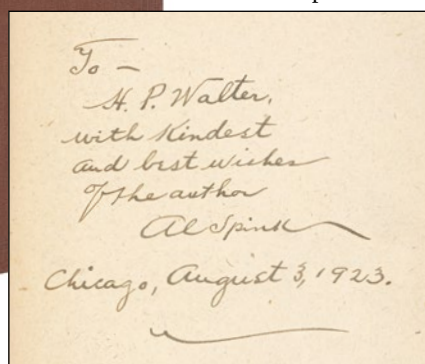 To —
H. P. Walter,
with kindest
and best wishes
of the author
Al Spink
Chicago, August 3, 1923.